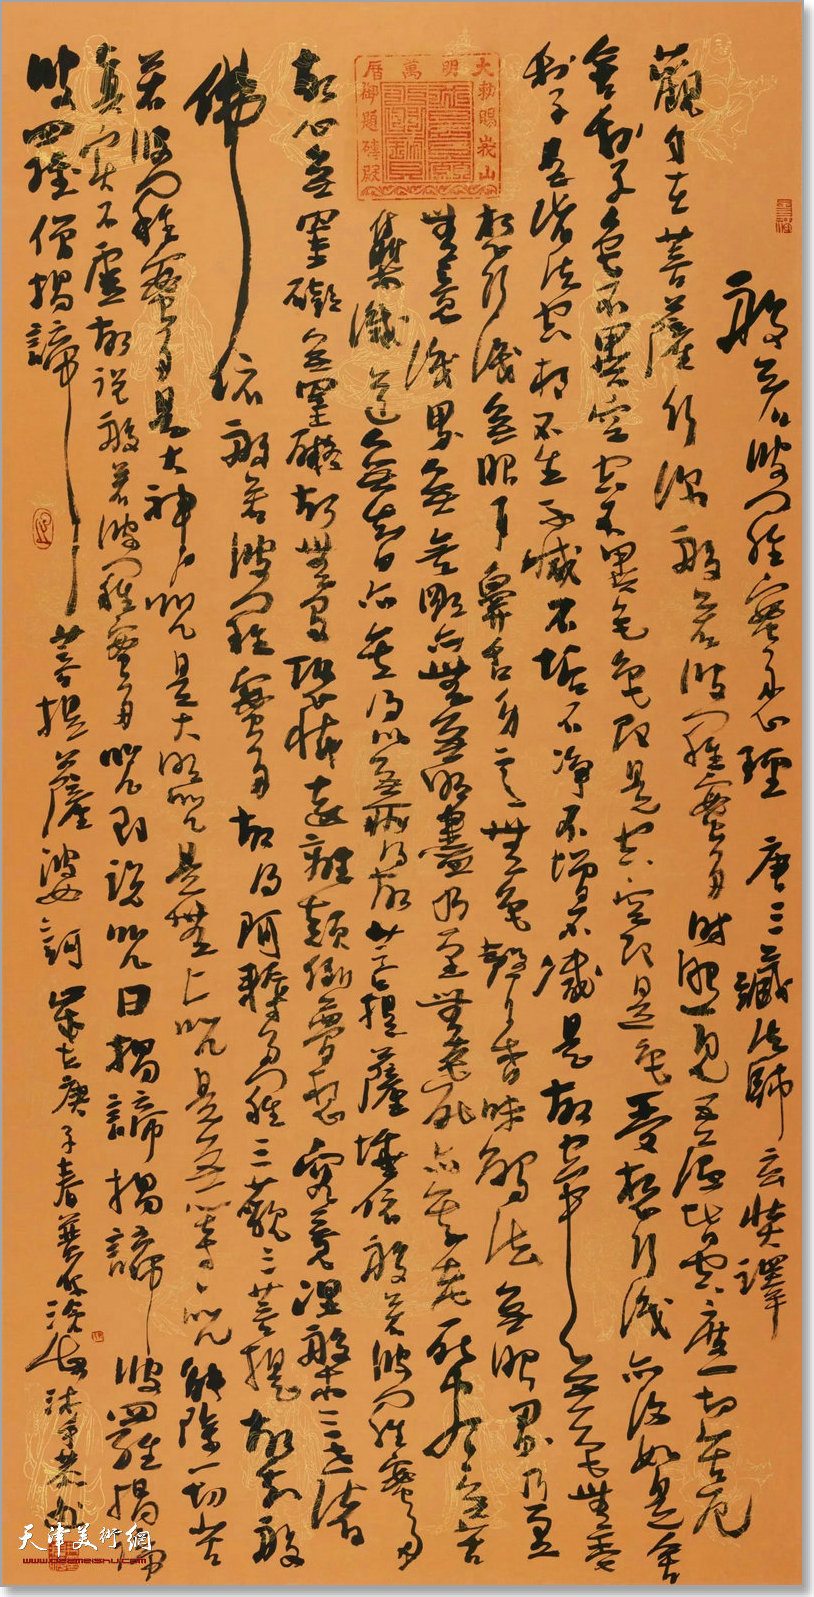 般若波羅蜜多心經 唐三藏法師玄奘譯
觀自在菩薩行深般若波羅蜜多時照見五蘊皆空度一切苦厄
舍利子色不異空空不異色色即是空空即是色受想行識亦復如是舍
利子是諸法空相不生不滅不垢不淨不增不減是故空中無色無受
想行識無眼耳鼻舌身意無色聲香味觸法無眼界乃至
無意識界無無明亦無無明盡乃至無老死亦無老死盡無苦
集滅道無智亦無得以無所得故菩提薩埵依般若波羅蜜多
故心無罣礙無罣礙故無有恐怖遠離顛倒夢想究竟涅槃三世諸
佛依般若波羅蜜多故得阿耨多羅三藐三菩提故知般
若波羅蜜多是大神咒是大明咒是無上咒是無等等咒能除一切苦
真實不虛故說般若波羅蜜多咒即說咒曰揭諦揭諦波羅揭諦
波羅僧揭諦菩提薩婆訶 歲在庚子春 沐手恭書
大明萬曆
勅賜峩山
御題磚殿
天津美術網
www.022meishu.com